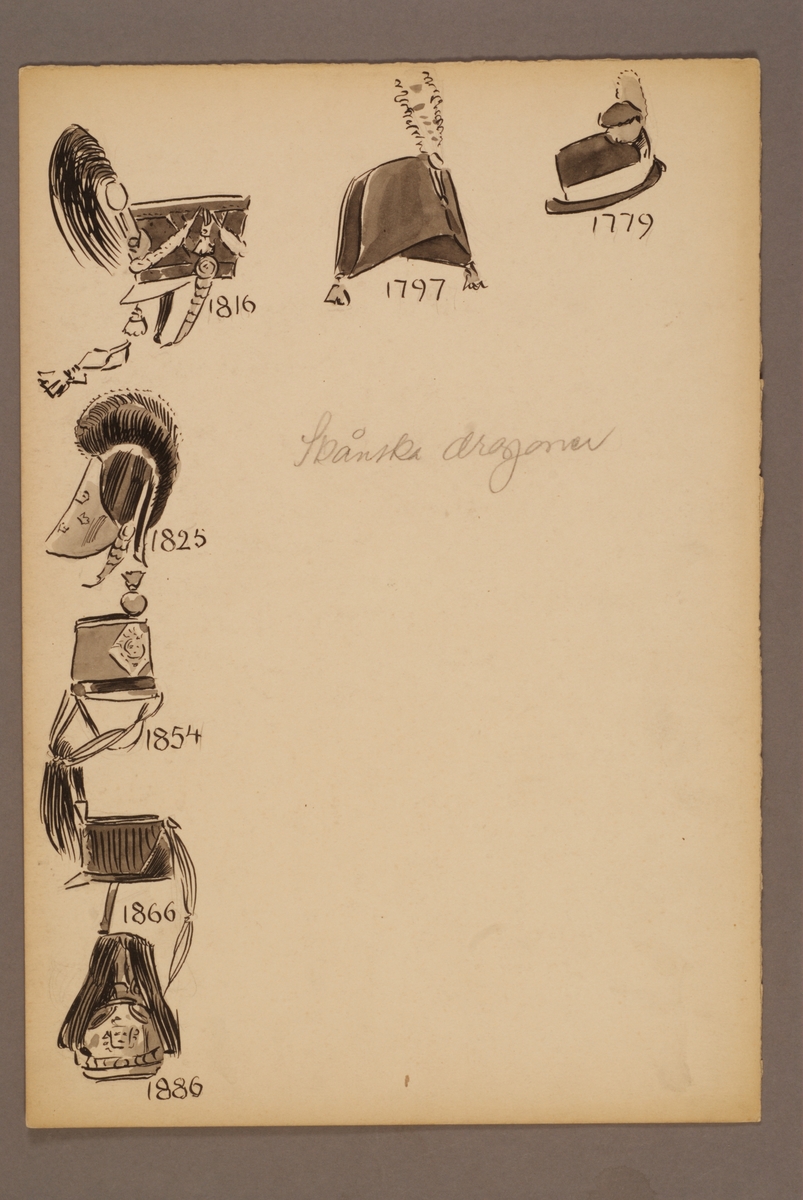 1779
1797
1816
Skånska dragoner
1825
1854
1866
1886